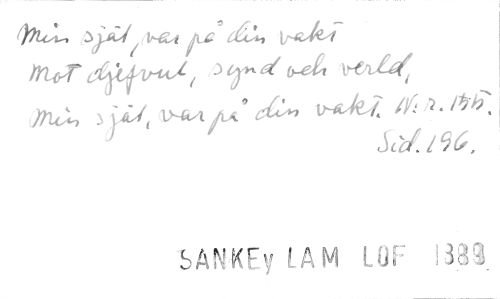 Min själ, var på din vakt
mot djefvul, synd och verld,
min själ, var på din vakt. N:r. 155.
Sid. 196.
SANKEy LAM LOF 1889